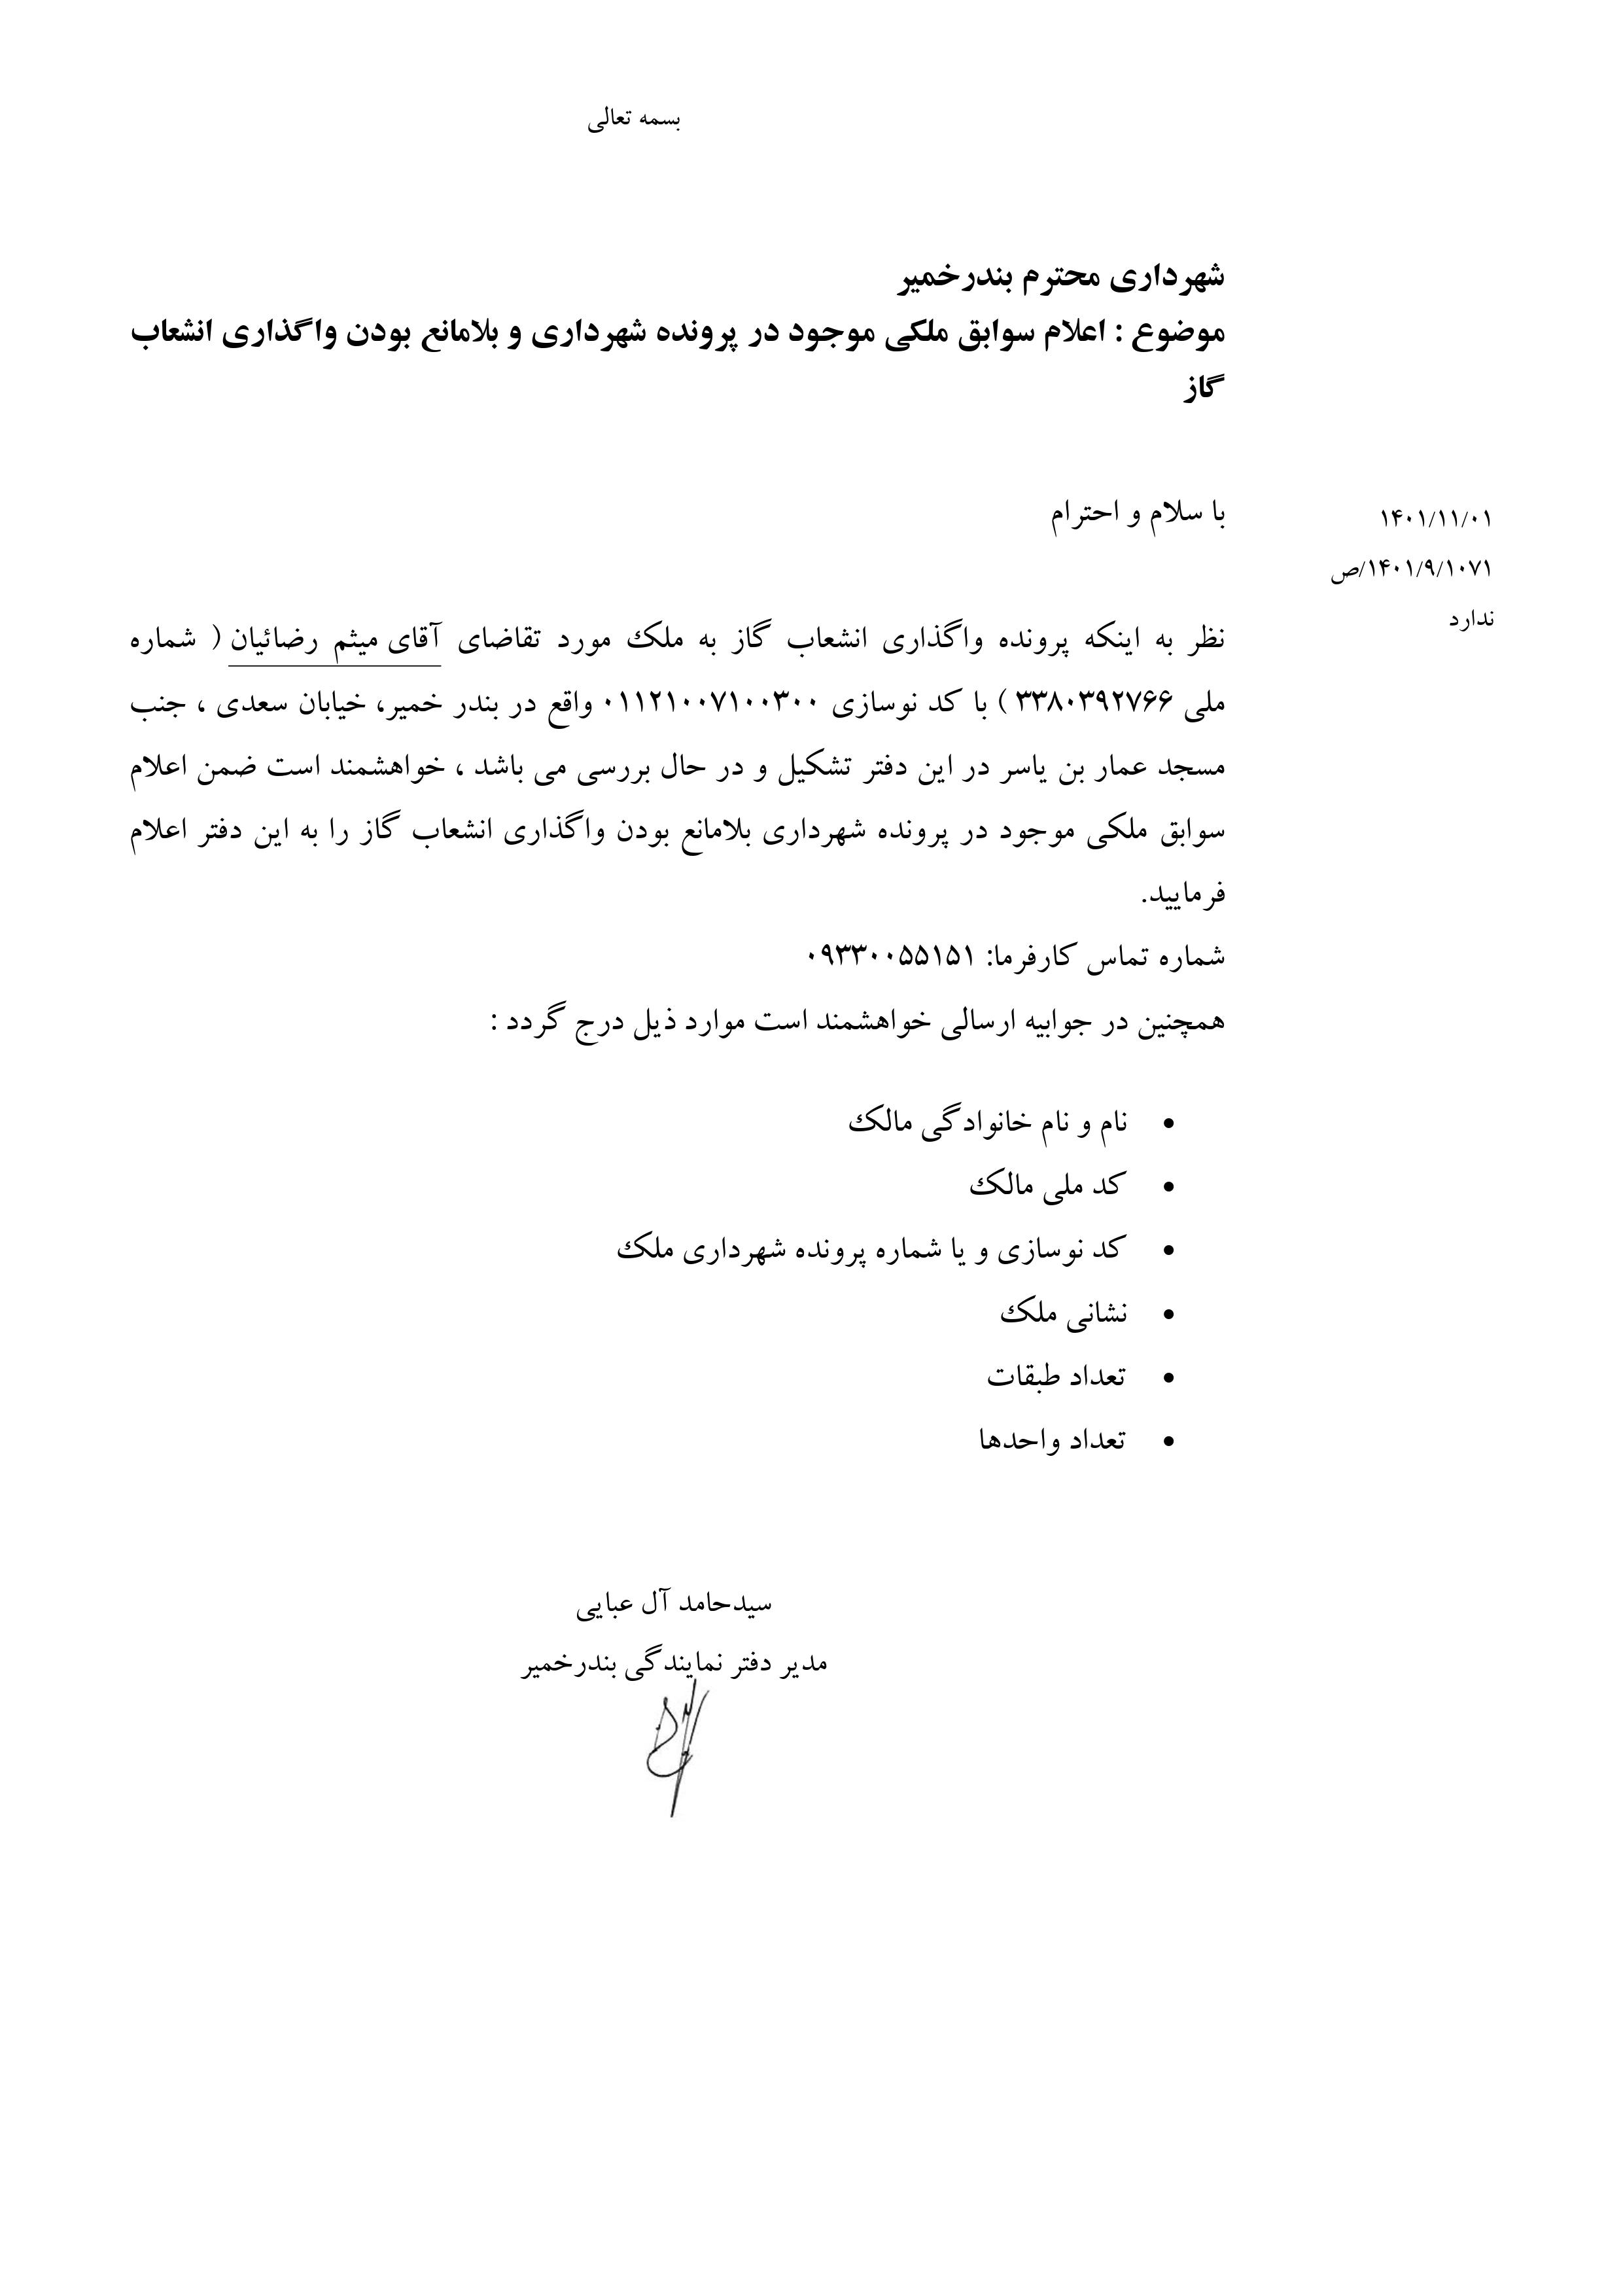 بسمه تعالی
شهرداری محترم بندرخمیر
موضوع : اعلام سوابق ملکی موجود در پرونده شهرداری و بلامانع بودن واگذاری انشعاب
گاز
۱۴۰۱/۱۱/۰۱
۱۴۰۱/۹/۱۰۷۱/ص
ندارد
با سلام و احترام
نظر به اینکه پرونده واگذاری انشعاب گاز به ملک مورد تقاضای آقای میثم رضائیان ( شماره
ملی ۳۳۸۰۳۹۲۷۶۶ ) با کد نوسازی ۰۱۱۲۱۰۰۷۱۰۰۳۰۰ واقع در بندر خمیر، خیابان سعدی ، جنب
مسجد عمار بن یاسر در این دفتر تشکیل و در حال بررسی می باشد ، خواهشمند است ضمن اعلام
سوابق ملکی موجود در پرونده شهرداری بلامانع بودن واگذاری انشعاب گاز را به این دفتر اعلام
فرمایید.
شماره تماس کارفرما: ۰۹۳۳۰۰۵۵۱۵۱
همچنین در جوابیه ارسالی خواهشمند است موارد ذیل درج گردد :
• نام و نام خانوادگی مالک
• کد ملی مالک
• کد نوسازی و یا شماره پرونده شهرداری ملک
• نشانی ملک
• تعداد طبقات
• تعداد واحدها
سیدحامد آل عبایی
مدیر دفتر نمایندگی بندرخمیر